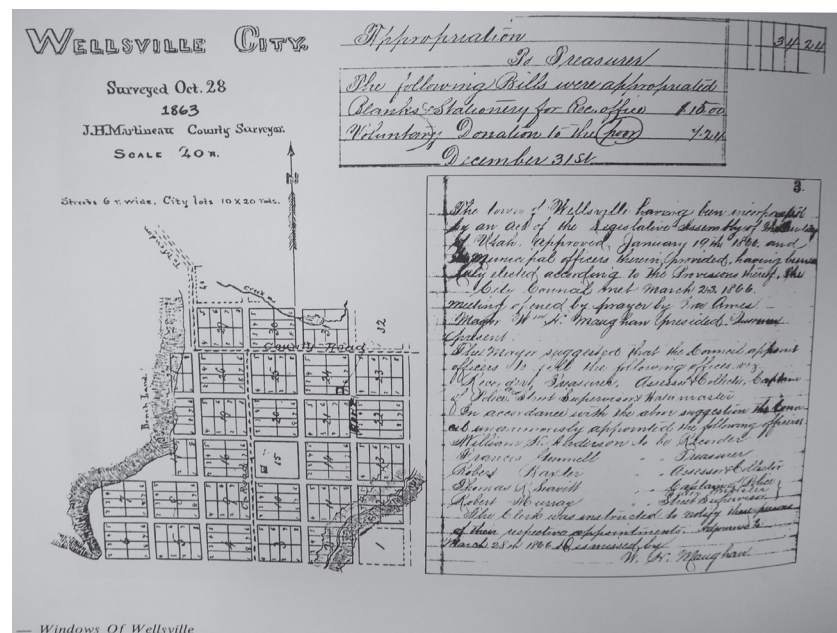 WELLSVILLE CITY.
Surveyed Oct. 28
1863
J.H. Martineau County Surveyor.
SCALE 20 R.
Streets 6 r. wide, City lots 10 x 20 rods.
Appropriation 34 24
To Treasurer
The following Bills were appropriated
Blanks & Stationery for Rec. office $15.00
Voluntary Donation to the poor 7.24
December 31st.
Creek
County Road
32
Bench Land
15
1
3.
The town of Wellsville having been incorporated
by an act of the Legislative Assembly of
of Utah. Approved, January 19th 1866, and
Municipal officers therein provided, having been
duly elected according to the Provisions thereof, the
City Council met March 22, 1866.
meeting opened by prayer by Ames
Mayor Wm H. Maughan presided,
present
The Mayor suggested that the Council appoint
officers to fill the following offices, viz,
Recorder, Treasurer, Assessor & Collector, Captain
of Police, Street Supervisor & Watermaster
In accordance with the above suggestion the Coun-
cil unanimously appointed the following officers
William F. Anderson to be Recorder
Francis Gunnell " " Treasurer
Robert Baxter " " Assessor & Collector
Thomas R. Leavitt " " Captain of Police
Robert Murray " " Street Supervisor
The Clerk was instructed to notify these persons
of their respective appointments.
March 28th 1866. Dismissed by
W. H. Maughan
— Windows Of Wellsville